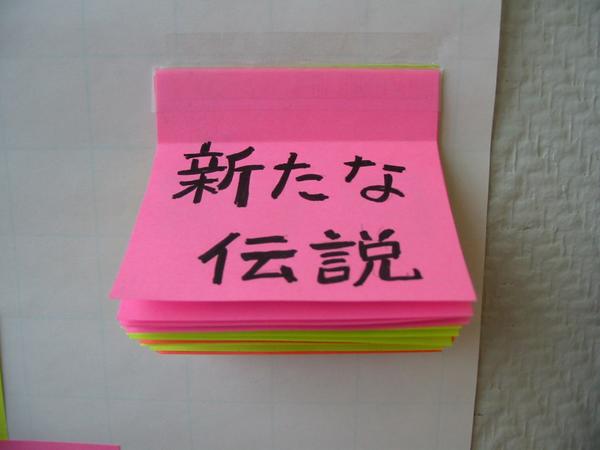 新たな
伝説